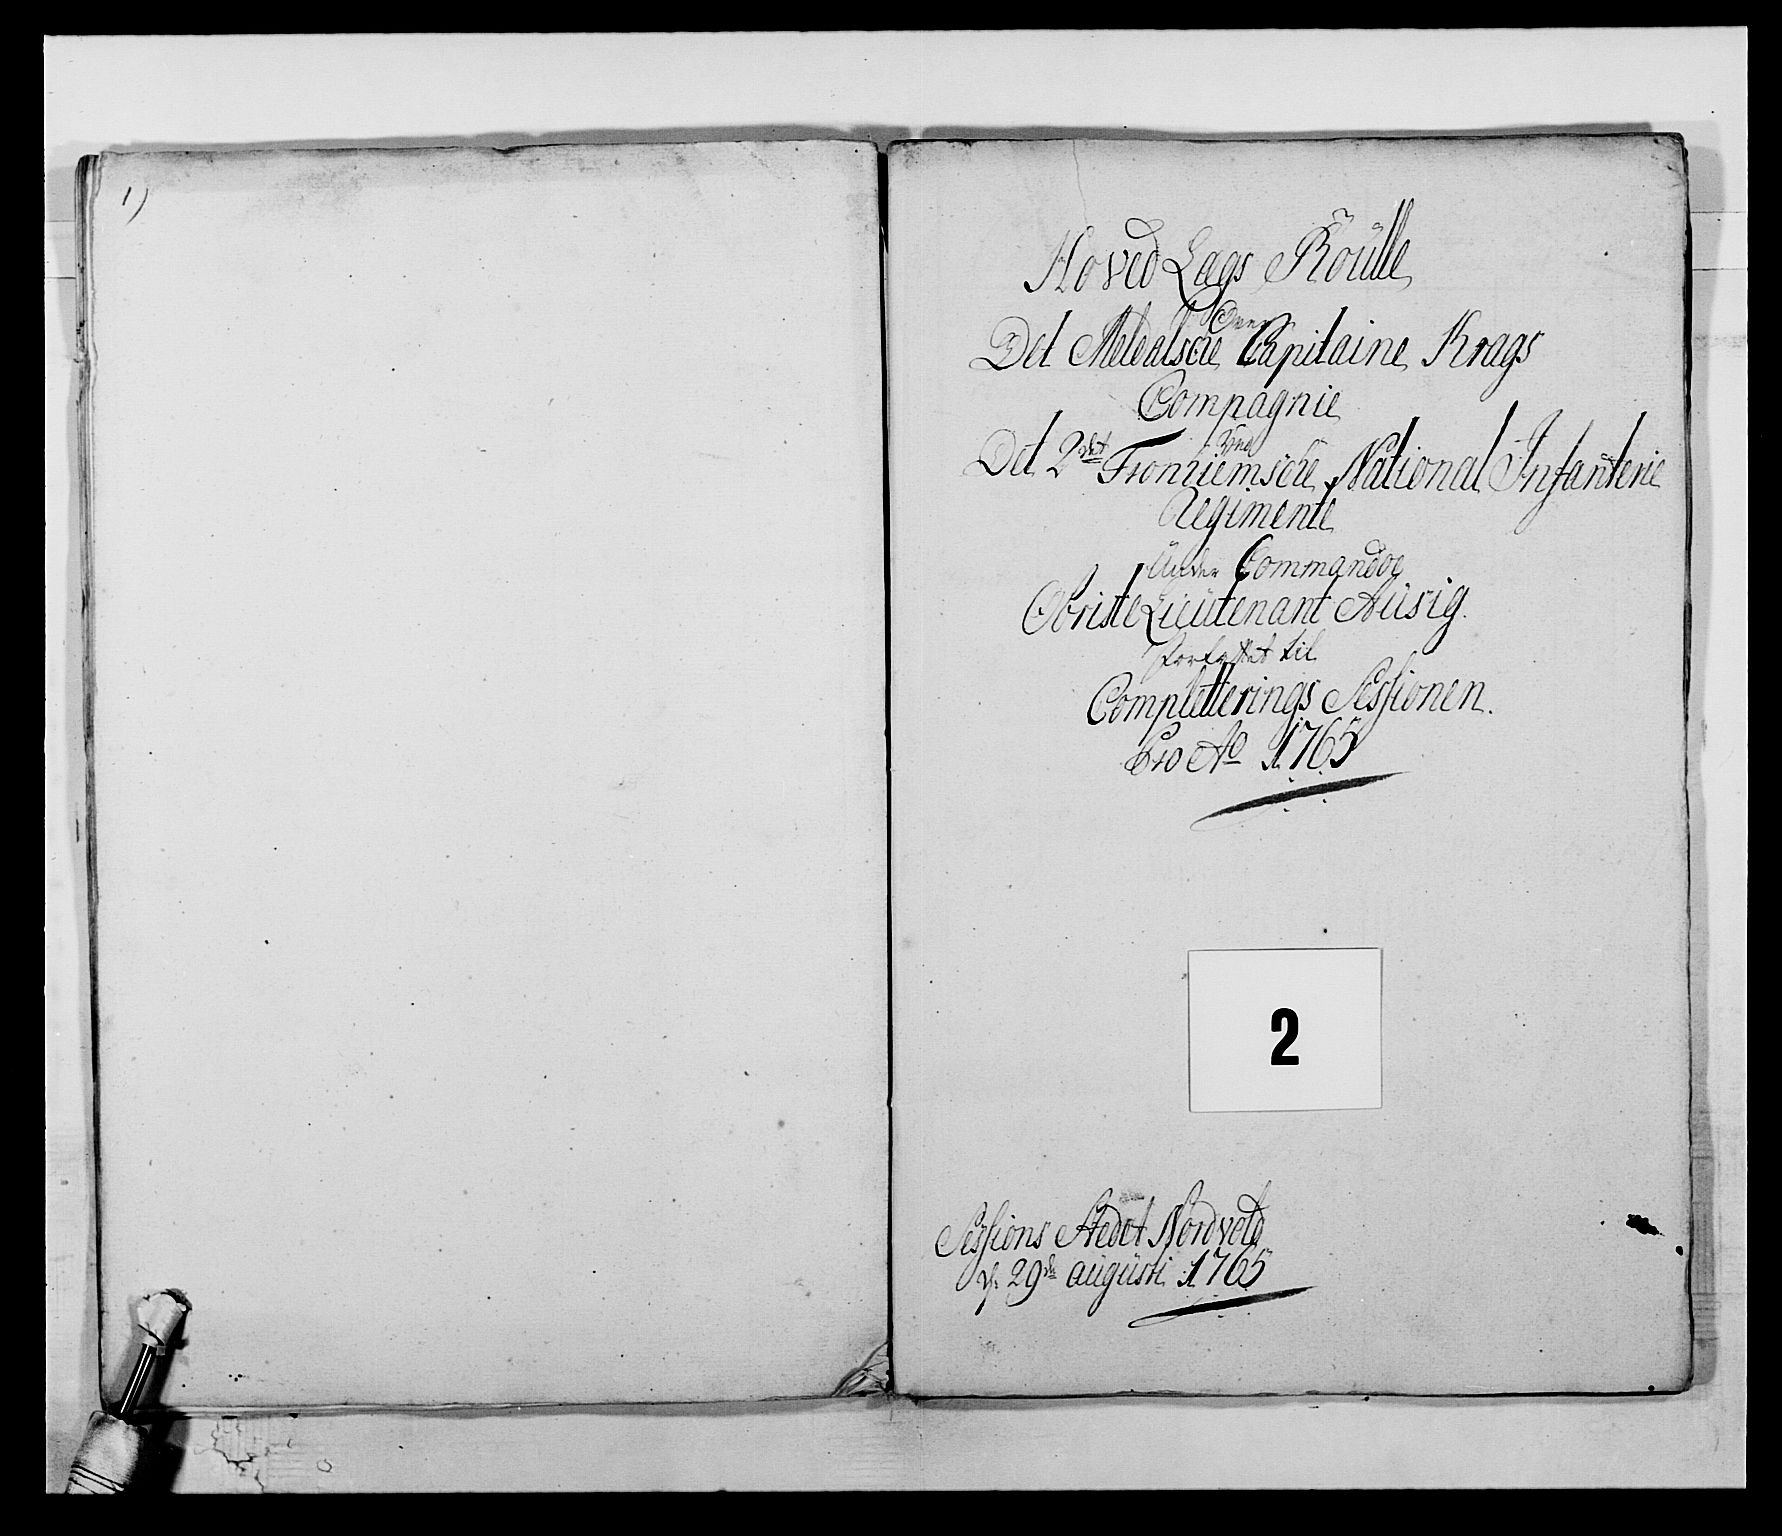 1)
Hoved Lægs Roülle
Over
Det Meldalsche Capitaine Krags
Compagnie
Ved
Det 2det Tronhiemsche National Infanterie
Regimente
Under Commando
Obriste Lieütenant Aüsig.
forfattet til
Completterings Sessionen.
Pro Ao 1765
2
Sessions Stedet Nordvold
d. 29de augüsti 1765